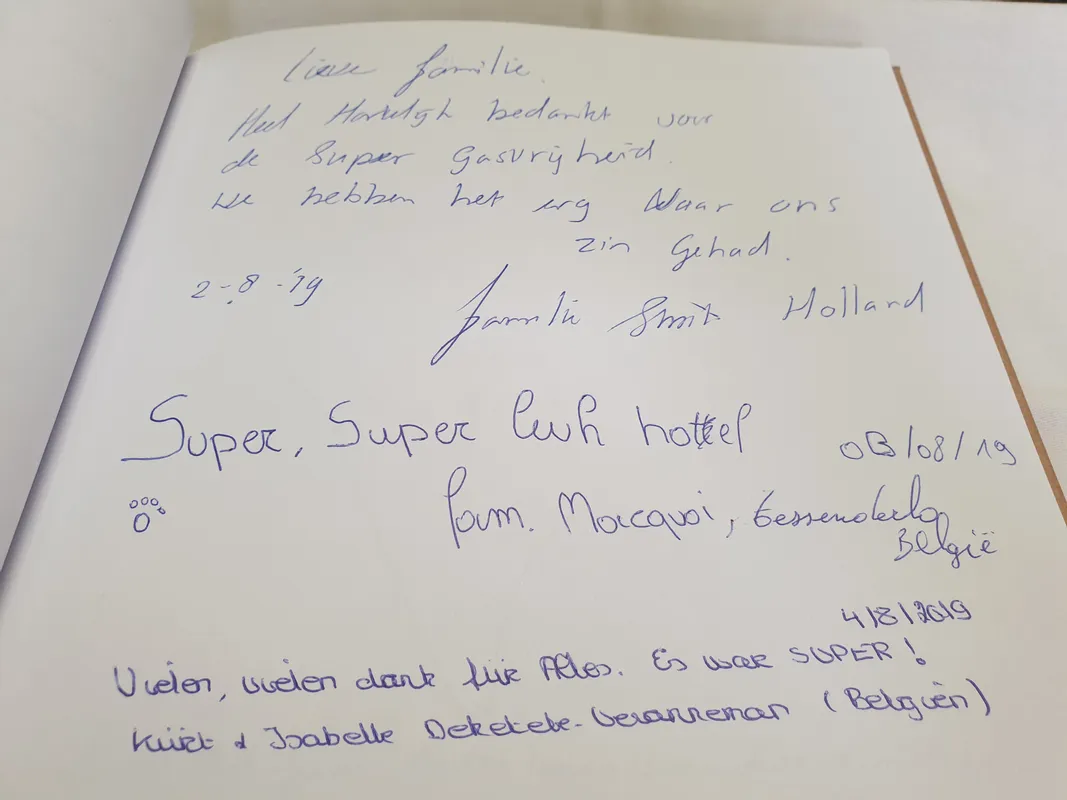 Lieve familie.
Heel Hartelijk bedankt voor
de Super Gasvrijheid.
we hebben het erg Naar ons
zin Gehad.
2-8-'19
familie Smit Holland
Super, Super leuk hottel
03/08/19
fam. Macquoi,
België
4/8/2019
Vielen, vielen dank für Alles. Es war SUPER!
Kürt & Isabelle Deketele-Veranneman (Belgiën)